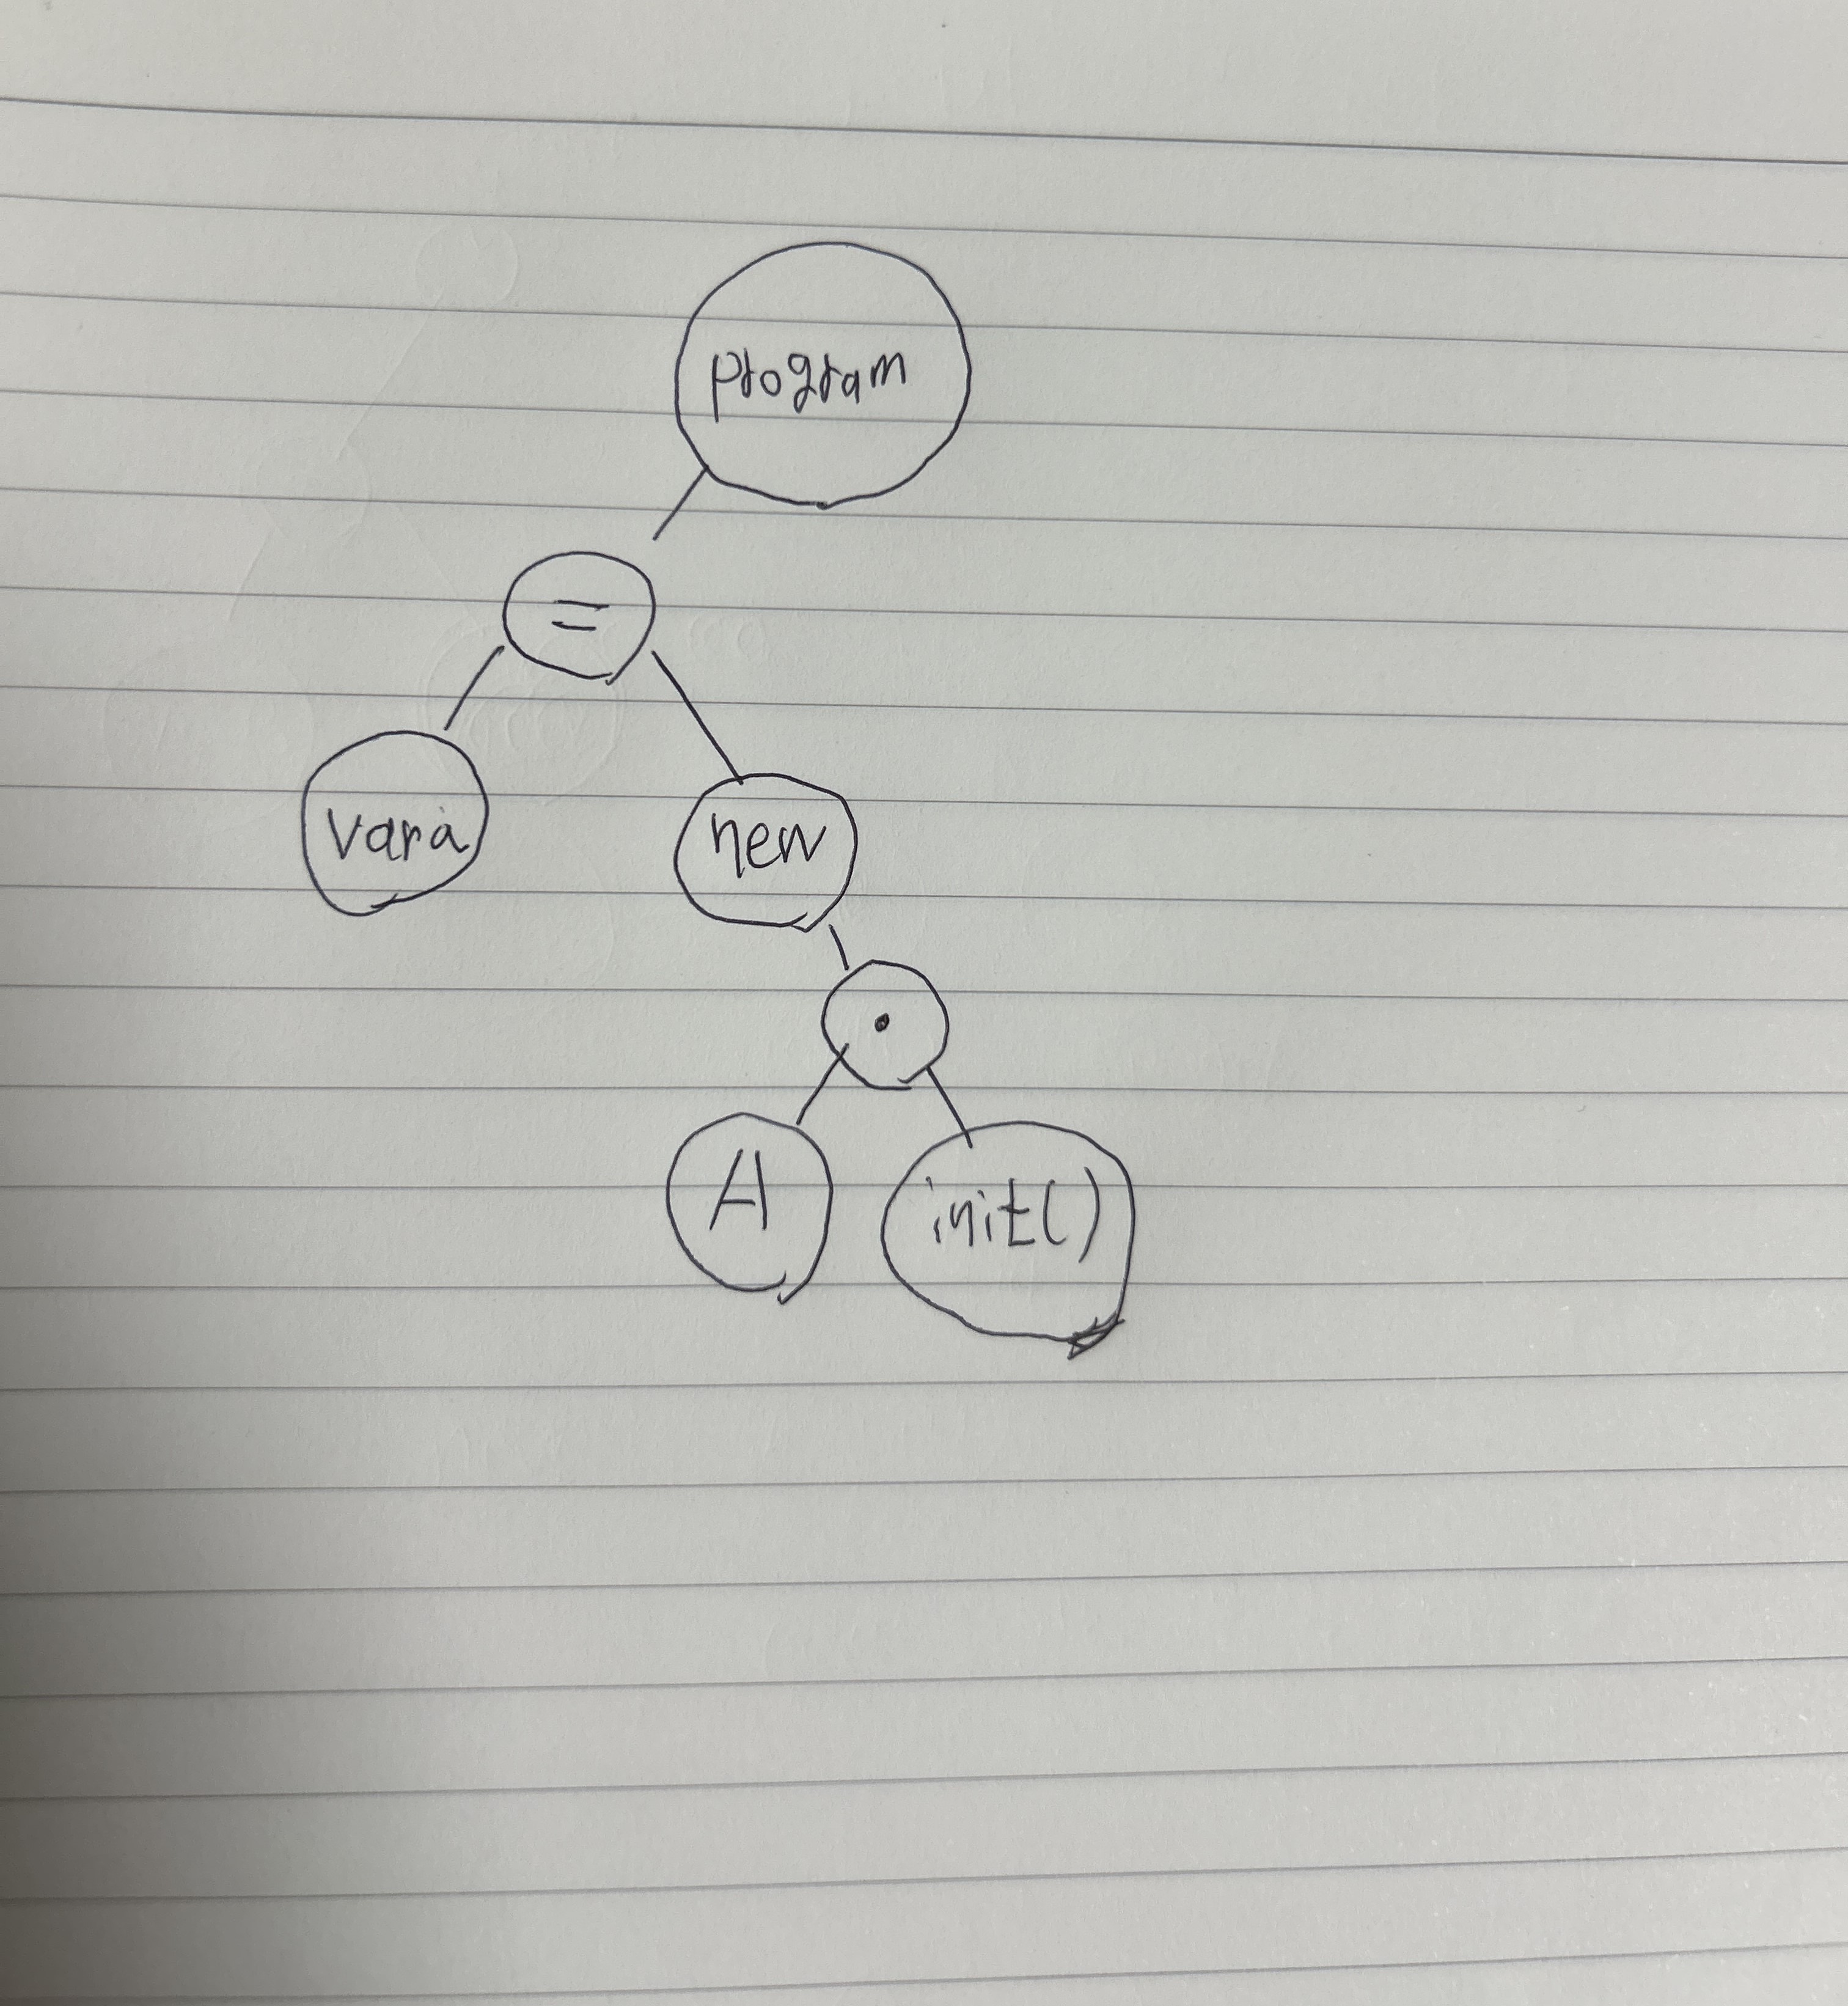 program
=
vara
new
.
A
init()